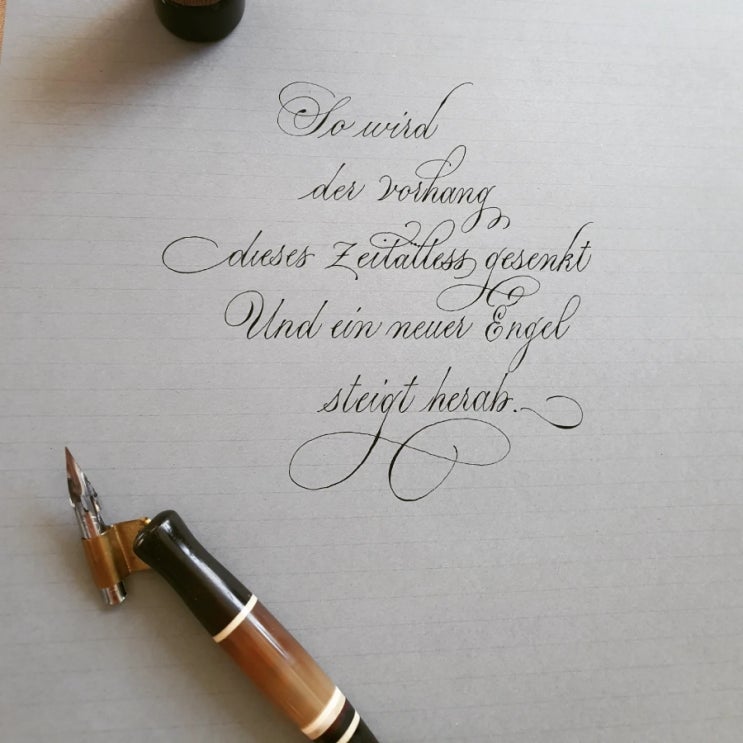 So wird
der vorhang
dieses Zeitalless gesenkt
Und ein neuer Engel
steigt herab.